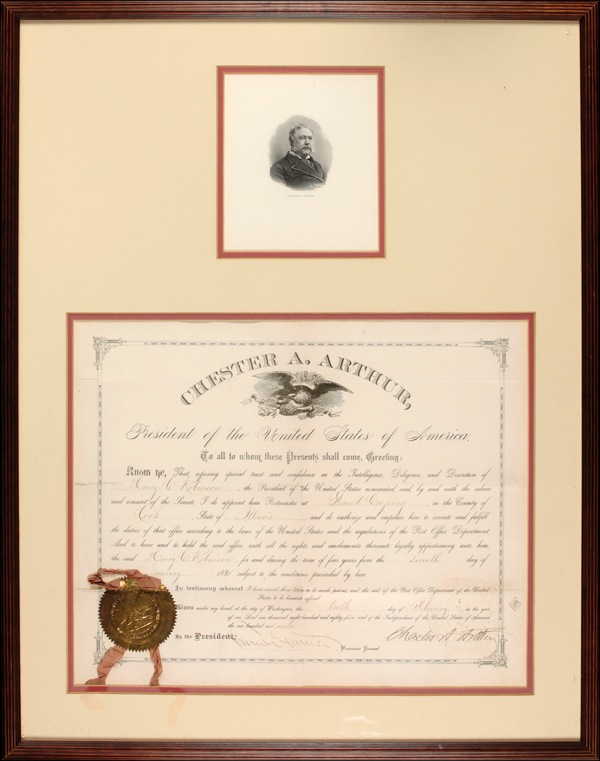 CHESTER A. ARTHUR,
President of the United States of America.
To all to whom these Presents shall come, Greeting:
Know Ye, That, reposing special trust and confidence in the Intelligence, Diligence, and Discretion of
the President of the United States nominated, and, by and with the advice
and consent of the Senate, I do appoint him Postmaster at Grand Crossing, in the County of
Cook, State of Illinois and do authorize and empower him to execute and fulfill
the duties of that office according to the laws of the United States and the regulations of the Post Office Department.
And to have and to hold the said office, with all the rights and emoluments thereunto legally appertaining unto him,
the said for and during the term of four years from the day of
188 subject to the conditions prescribed by law.
In testimony whereof I have caused these letters to be made patent, and the seal of the Post Office Department of the United
States to be hereunto affixed.
Given under my hand, at the city of Washington, the day of in the year
of our Lord one thousand eight hundred and eighty and of the Independence of the United States of America
the one hundred and
By the President: Chester A. Arthur
Postmaster General.